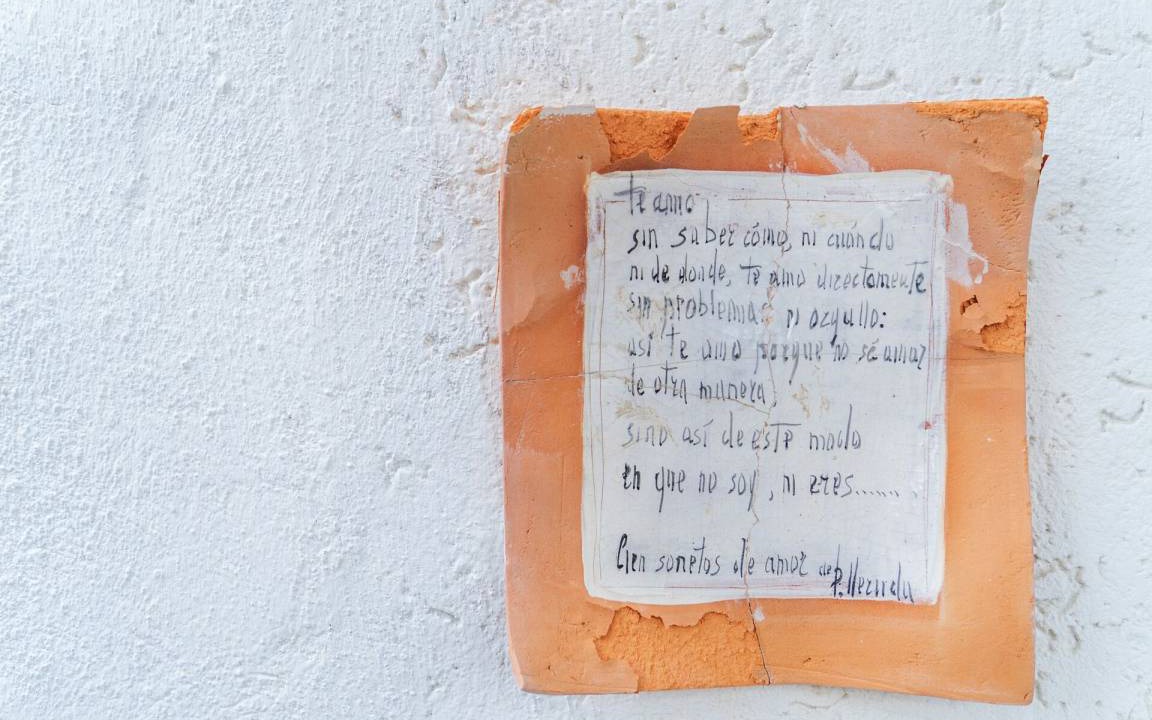 te amo
sin saber cómo, ni cuándo
ni de donde, te amo directamente
sin problemas ni orgullo:
así te amo porque no sé amar
de otra manera,
sino así de este modo
en que no soy, ni eres.......
Cien sonetos de amor de
P. Neruda